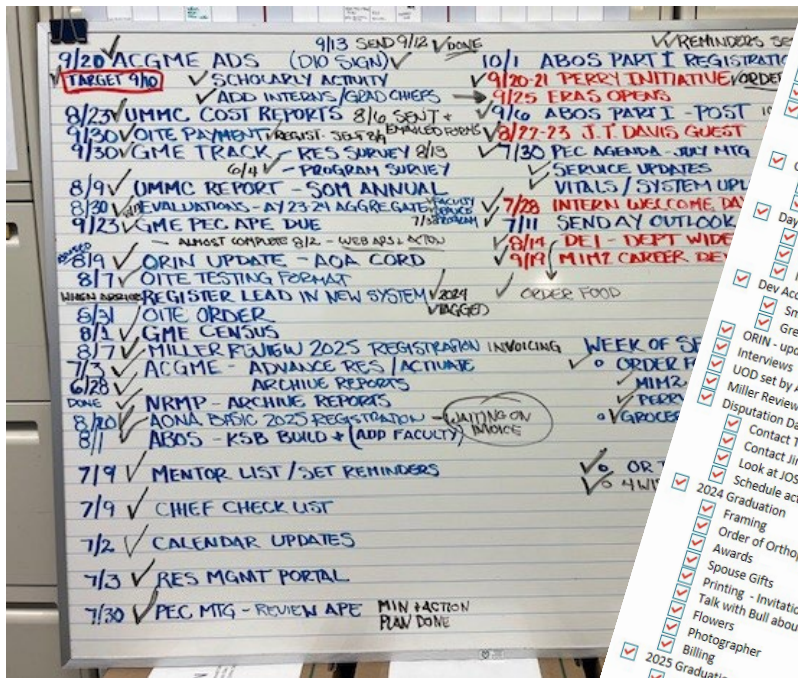 9/13 SEND 9/12 ✓DONE
9/20 ✓ ACGME ADS (DIO SIGN) ✓
✓ TARGET 9/10 ✓ SCHOLARLY ACTIVITY
✓ ADD INTERNS/GRAD CHIEFS
8/23 ✓ UMMC COST REPORTS 8/6 SENT +
EMAILED FORMS
9/30 ✓ OITE PAYMENT ✓ REGIST. SENT
9/30 ✓ GME TRACK ✓ - RES SURVEY 8/13
6/4 ✓ - PROGRAM SURVEY
8/9 ✓ UMMC REPORT - SOM ANNUAL
8/30 ✓ EVALUATIONS - AY 23-24 AGGREGATE ✓FACULTY
PROGRAM
9/23 ✓ GME PEC APE DUE
- ALMOST COMPLETE 8/2 - WEB ADS & ACTION
8/9 ✓ ORIN UPDATE - AOA CORD
8/7 ✓ OITE TESTING FORMAT
WHEN ARRIVES REGISTER LEAD IN NEW SYSTEM ✓ 2024
✓TAGGED
8/31 ✓ OITE ORDER
8/1 ✓ GME CENSUS
8/7 ✓ MILLER REVIEW 2025 REGISTRATION INVOICING
7/3 ✓ ACGME - ADVANCE RES / ACTIVATE
6/28 ✓ ARCHIVE REPORTS
DONE ✓ NRMP - ARCHIVE REPORTS
8/20 ✓ AONA BASIC 2025 REGISTRATION - WAITING ON
INVOICE
8/1 ✓ ABOS - KSB BUILD + (ADD FACULTY)
7/9 ✓ MENTOR LIST / SET REMINDERS
7/9 ✓ CHIEF CHECK LIST
7/2 ✓ CALENDAR UPDATES
7/3 ✓ RES MGMT PORTAL
7/30 ✓ PEC MTG - REVIEW APE MIN + ACTION
PLAN DONE
✓✓REMINDERS SE
10/1 ABOS PART I REGISTRATIO
✓ 9/20-21 PERRY INITIATIVE ✓ORDER
→ 9/25 ERAS OPENS
✓ 9/6 ABOS PART I - POST
✓ 8/22-23 J.T. DAVIS GUEST
✓ 7/30 PEC AGENDA - JULY MTG
✓ SERVICE UPDATES
✓ VITALS / SYSTEM UPL
✓ 7/28 INTERN WELCOME DA
✓ 7/11 SEND AY OUTLOOK
✓ 8/14 DEI - DEPT WIDE
✓ 9/19 MIMZ CAREER DE
✓ ORDER FOOD
WEEK OF SE
✓ o ORDER F
✓ MIMZ
✓ PERR
o ✓ GROCE
✓ o OR T
✓ o 4 W
Day
Dev Acc
Sm
Gre
ORIN - upd
Interviews
UOD set by A
Miller Review
Disputation Da
Contact T
Contact Jir
Look at JOS
Schedule act
2024 Graduation
Framing
Order of Orthop
Awards
Spouse Gifts
Printing - Invitatio
Talk with Bull abou
Flowers
Photographer
Billing
2025 Graduatio